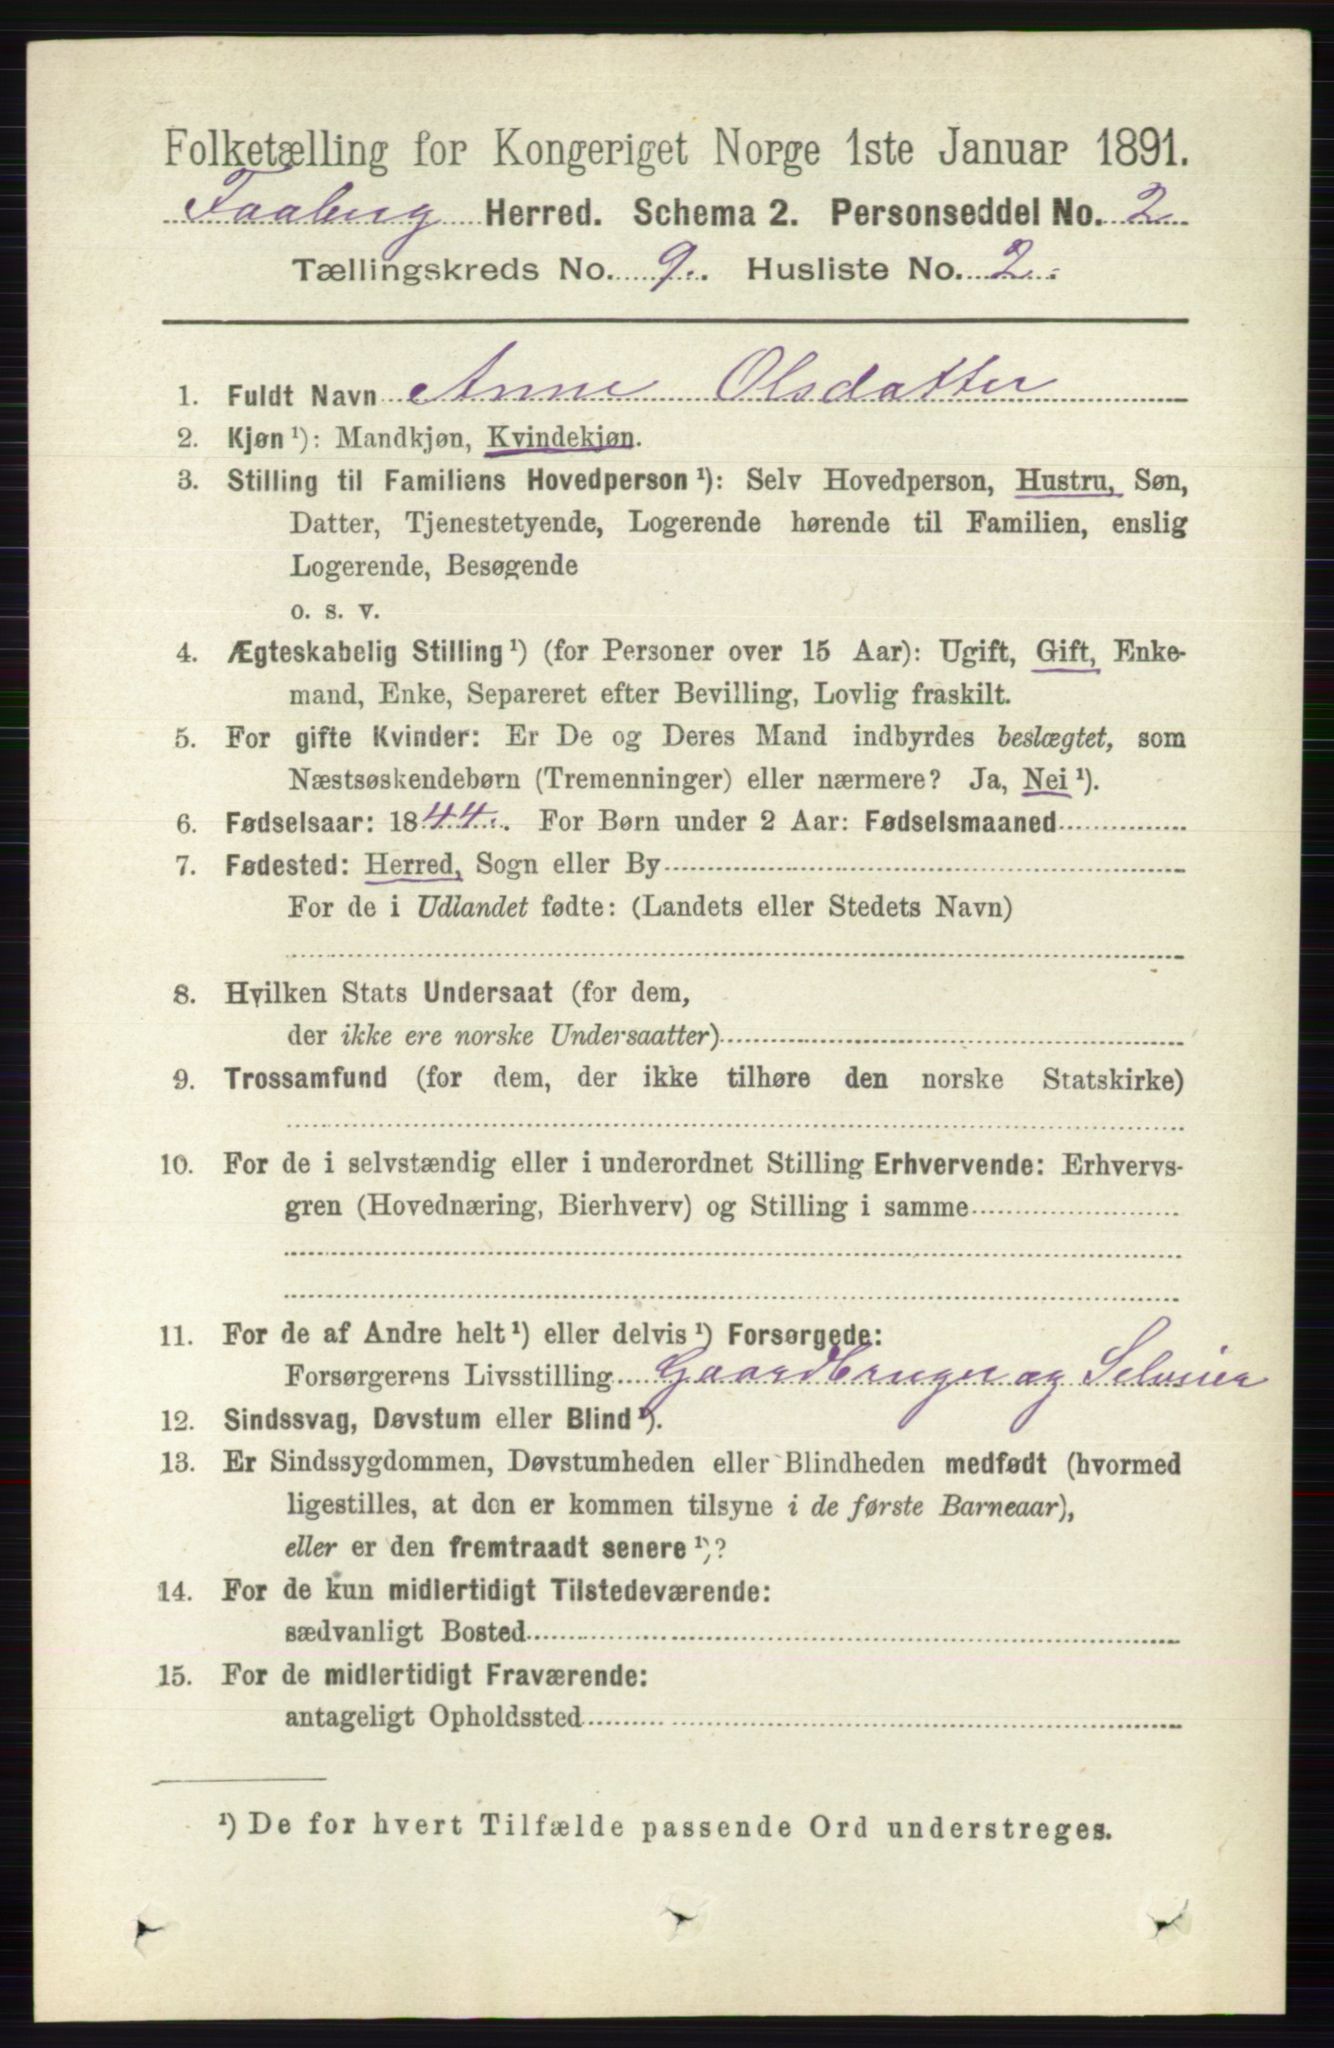 Folketælling for Kongeriget Norge 1ste Januar 1891.
Faaberg Herred. Schema 2. Personseddel No. 2
Tællingskreds No. 9. Husliste No. 2
1. Fuldt Navn Anne Olsdatter
2. Kjøn ¹): Mandkjøn, Kvindekjøn.
3. Stilling til Familiens Hovedperson ¹): Selv Hovedperson, Hustru, Søn,
Datter, Tjenestetyende, Logerende hørende til Familien, enslig
Logerende, Besøgende
o. s. v.
4. Ægteskabelig Stilling ¹) (for Personer over 15 Aar): Ugift, Gift, Enke-
mand, Enke, Separeret efter Bevilling, Lovlig fraskilt.
5. For gifte Kvinder: Er De og Deres Mand indbyrdes beslægtet, som
Næstsøskendebørn (Tremenninger) eller nærmere? Ja, Nei ¹).
6. Fødselsaar: 1844. For Børn under 2 Aar: Fødselsmaaned
7. Fødested: Herred, Sogn eller By
For de i Udlandet fødte: (Landets eller Stedets Navn)
8. Hvilken Stats Undersaat (for dem,
der ikke ere norske Undersaatter)
9. Trossamfund (for dem, der ikke tilhøre den norske Statskirke)
10. For de i selvstændig eller i underordnet Stilling Erhvervende: Erhvervs-
gren (Hovednæring, Bierhverv) og Stilling i samme
11. For de af Andre helt ¹) eller delvis ¹) Forsørgede:
Forsørgerens Livsstilling Gaardbruger og Selveier
12. Sindssvag, Døvstum eller Blind ¹).
13. Er Sindssygdommen, Døvstumheden eller Blindheden medfødt (hvormed
ligestilles, at den er kommen tilsyne i de første Barneaar),
eller er den fremtraadt senere ¹)?
14. For de kun midlertidigt Tilstedeværende:
sædvanligt Bosted
15. For de midlertidigt Fraværende:
antageligt Opholdssted
¹) De for hvert Tilfælde passende Ord understreges.